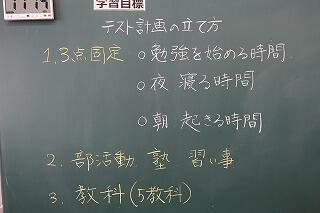 学習目標
テスト計画の立て方
1.3点固定 ○勉強を始める時間
○夜 寝る時間
○朝 起きる時間
2. 部活動 塾 習い事
3. 教科(5教科)